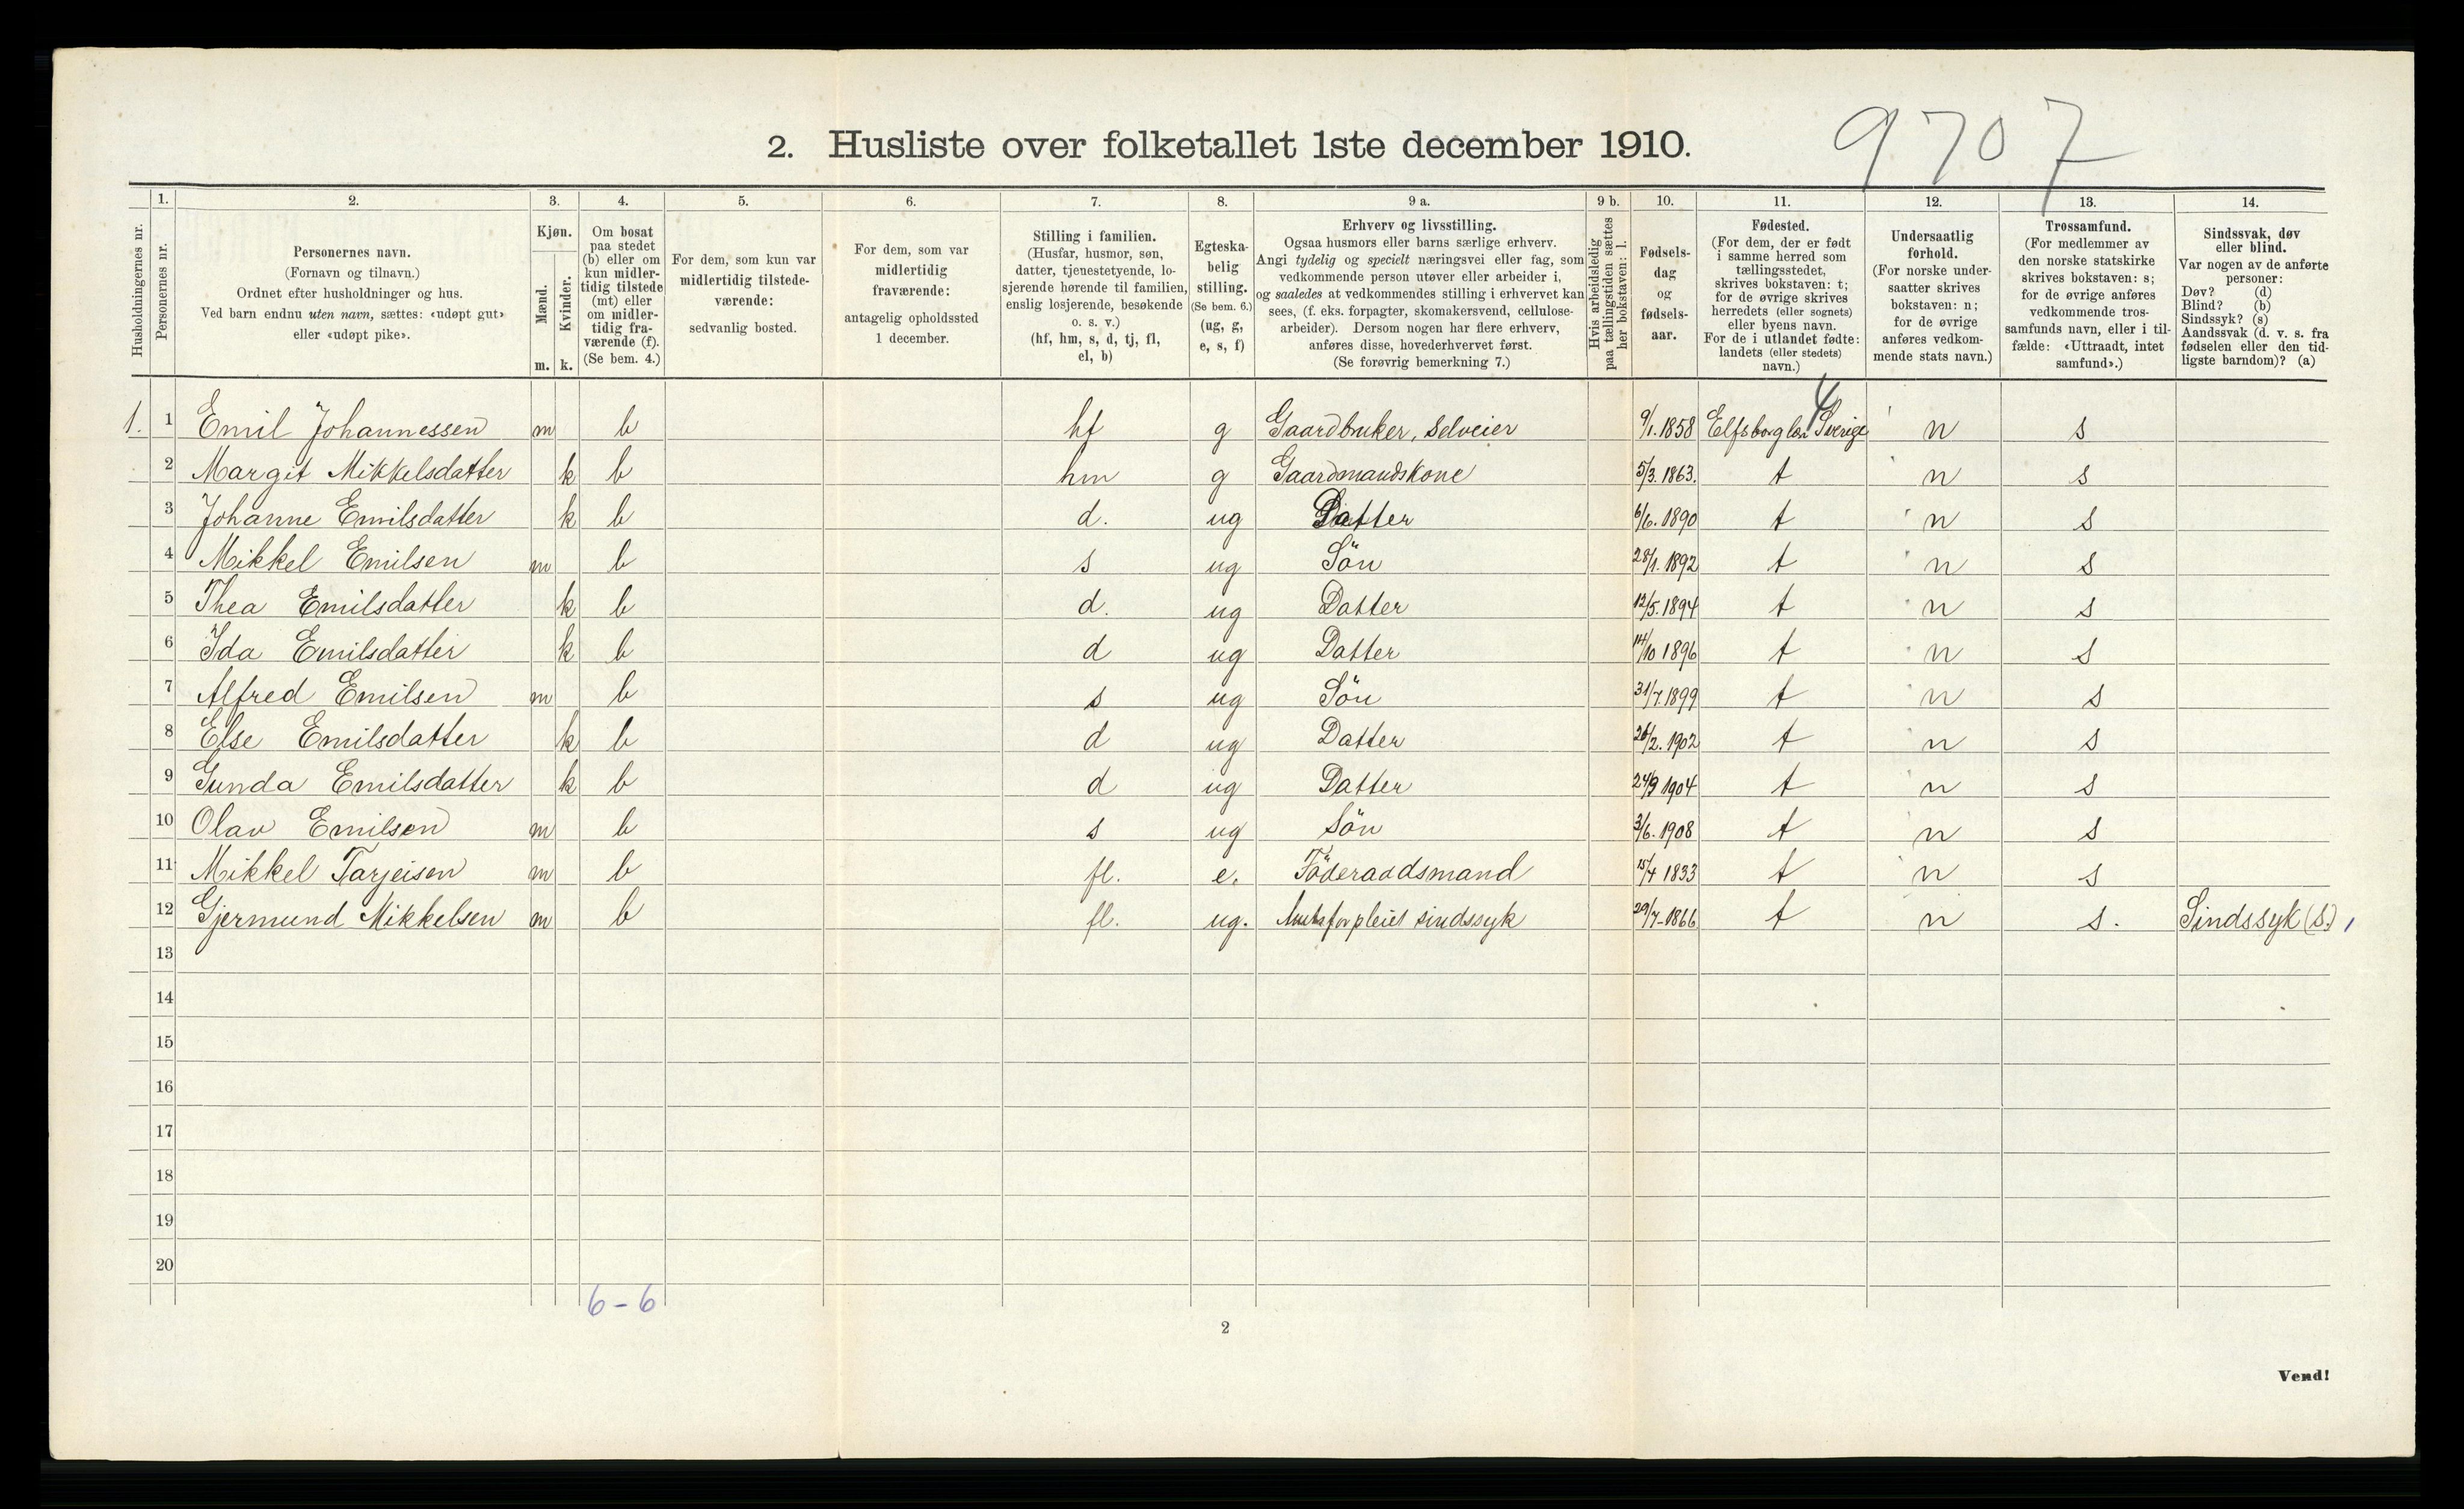 9707
2. Husliste over folketallet 1ste december 1910.
Husholdningernes nr.
1.
Personernes nr.
2.
Personernes navn.
(Fornavn og tilnavn.)
Ordnet efter husholdninger og hus.
Ved barn endnu uten navn, sættes: «udøpt gut»
eller «udøpt pike».
3.
Kjøn.
Mænd.
Kvinder.
m. k.
4.
Om bosat
paa stedet
(b) eller om
kun midler-
tidig tilstede
(mt) eller
om midler-
tidig fra-
værende (f).
(Se bem. 4.)
5.
For dem, som kun var
midlertidig tilstede-
værende:
sedvanlig bosted.
6.
For dem, som var
midlertidig
fraværende:
antagelig opholdssted
1 december.
7.
Stilling i familien.
(Husfar, husmor, søn,
datter, tjenestetyende, lo-
sjerende hørende til familien,
enslig losjerende, besøkende
o. s. v.)
(hf, hm, s, d, tj, fl,
el, b)
8.
Egteska-
belig
stilling.
(Se bem. 6.)
(ug, g,
e, s, f)
9 a.
Erhverv og livsstilling.
Ogsaa husmors eller barns særlige erhverv.
Angi tydelig og specielt næringsvei eller fag, som
vedkommende person utøver eller arbeider i,
og saaledes at vedkommendes stilling i erhvervet kan
sees, (f. eks. forpagter, skomakersvend, cellulose-
arbeider). Dersom nogen har flere erhverv,
anføres disse, hovederhvervet først.
(Se forøvrig bemerkning 7.)
9 b.
Hvis arbeidsledig
paa tællingstiden sættes
her bokstaven: l.
10.
Fødsels-
dag
og
fødsels-
aar.
11.
Fødested.
(For dem, der er født
i samme herred som
tællingsstedet,
skrives bokstaven: t;
for de øvrige skrives
herredets (eller sognets)
eller byens navn.
For de i utlandet fødte:
landets (eller stedets)
navn.)
12.
Undersaatlig
forhold.
(For norske under-
saatter skrives
bokstaven: n;
for de øvrige
anføres vedkom-
mende stats navn.)
13.
Trossamfund.
(For medlemmer av
den norske statskirke
skrives bokstaven: s;
for de øvrige anføres
vedkommende tros-
samfunds navn, eller i til-
fælde: «Uttraadt, intet
samfund».)
14.
Sindssvak, døv
eller blind.
Var nogen av de anførte
personer:
Døv? (d)
Blind? (b)
Sindssyk? (s)
Aandssvak (d. v. s. fra
fødselen eller den tid-
ligste barndom)? (a)
4
1. 1 Emil Johannessen m b hf g Gaardbruker, Selveier 9/1. 1858 Elfsborg len Sverige n s
2 Margit Mikkelsdatter k b hm g Gaardmandskone 5/3. 1863. t n s
3 Johanne Emilsdatter k b d. ug Datter 6/6. 1890 t n s
4 Mikkel Emilsen m b s ug Sön 28/1. 1892 t n s
5 Thea Emilsdatter k b d. ug Datter 12/5. 1894 t n s
6 Ida Emilsdatter k b d ug Datter 14/10 1896 t n s
7 Alfred Emilsen m b s ug Sön 31/7. 1899 t n s
8 Else Emilsdatter k b d ug Datter 26/2. 1902 t n s
9 Gunda Emilsdatter k b d ug Datter 24/9 1904 t n s
10 Olav Emilsen m b s ug Sön 3/6. 1908 t n s
11 Mikkel Tarjeisen m b fl. e. Föderaadsmand 15/4 1833 t n s
12 Gjermund Mikkelsen m b fl. ug. Amtsforpleiet sindssyk 29/7-1866 t n s. Sindssyk (s.)
13
14
15
16
17
18
19
20
6-6
2
Vend!